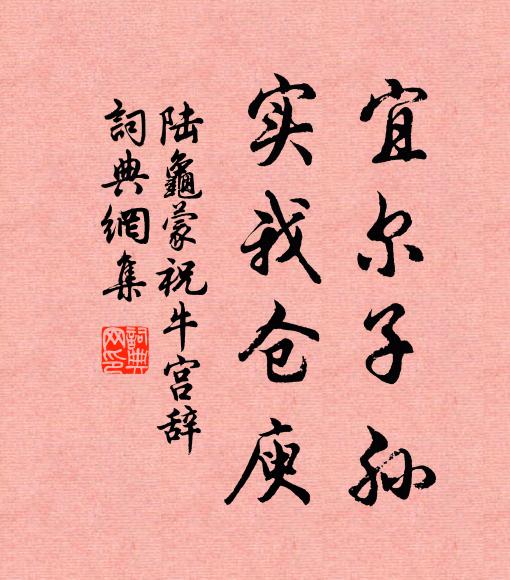 宜尔子孙
实我仓庾
陆龜蒙祝牛宫辞
詞典網集
詞典网印